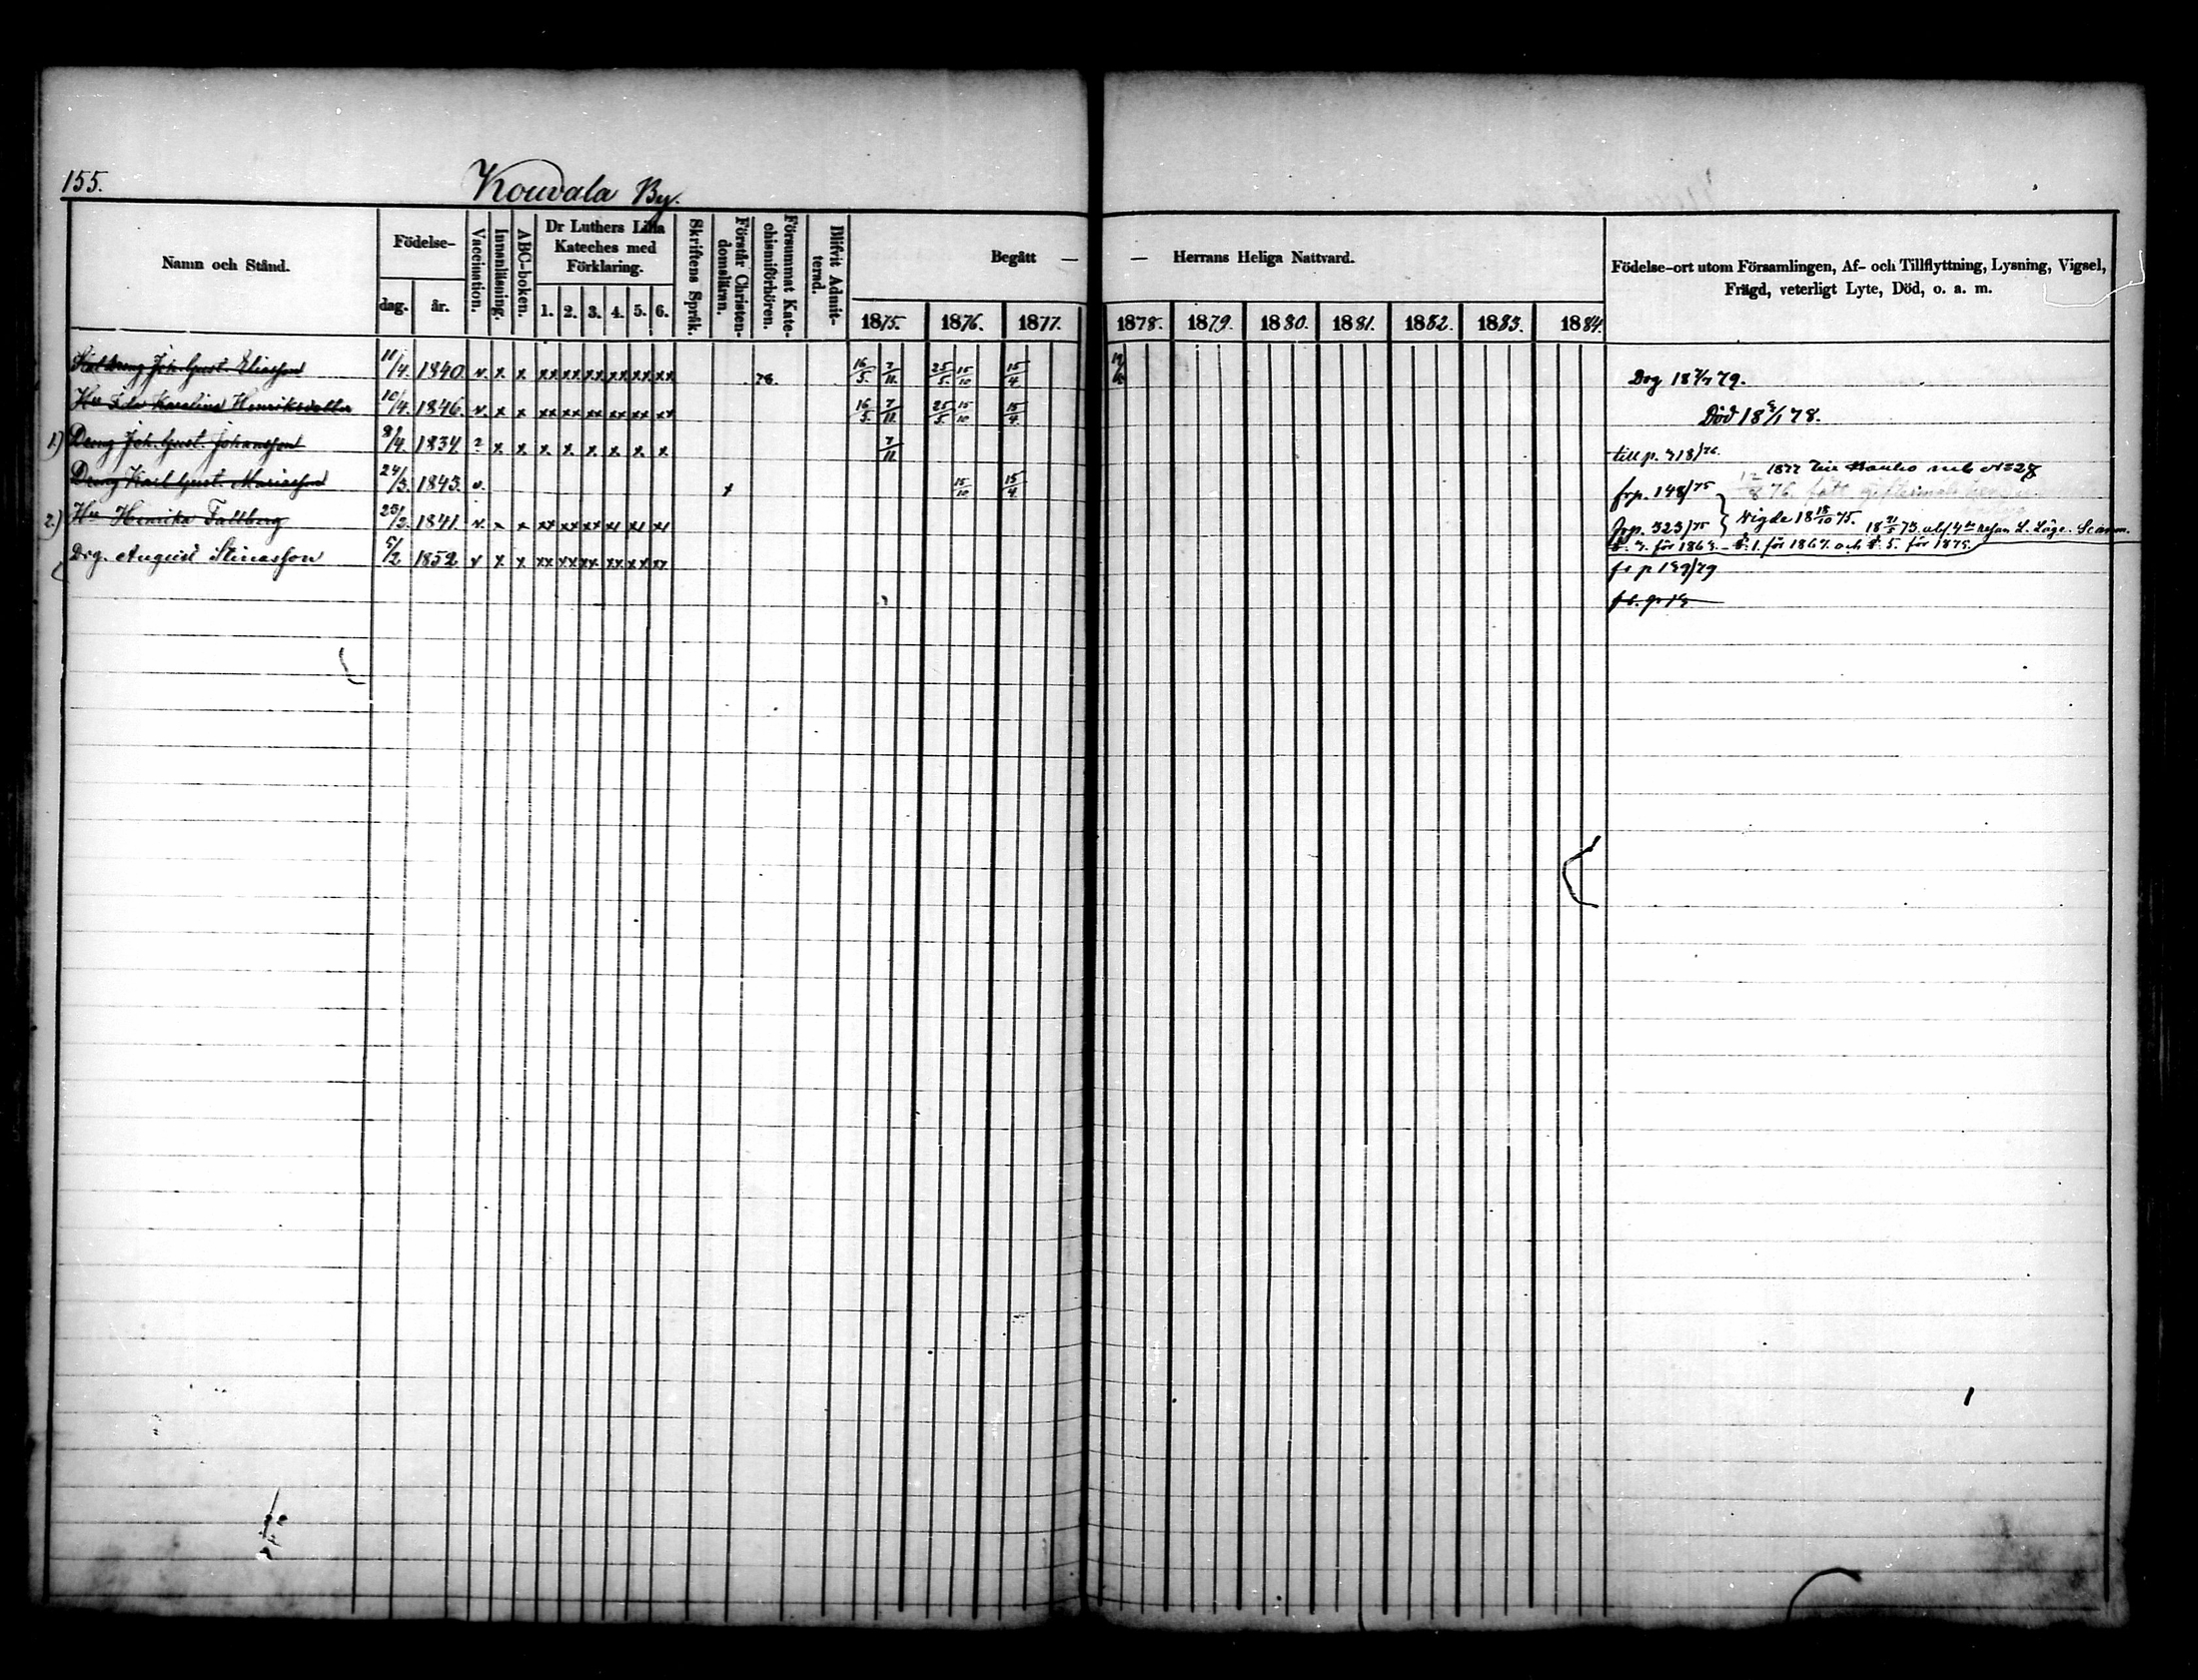 155.
Kouvala By.
Namn och Stånd.
Födelse-
dag. år.
Vaccination.
Innanläsning.
ABC-boken.
Dr Luthers Lilla Kateches med Förklaring.
1. 2. 3. 4. 5. 6.
Skriftens Språk.
Förstår Christen-domsläran.
Försummat Kate-chismiförhören.
Blifvit Admit-terad.
Begått — — Herrans Heliga Nattvard.
1875. 1876. 1877. 1878. 1879. 1880. 1881. 1882. 1883. 1884.
Födelse-ort utom Församlingen, Af- och Tillflyttning, Lysning, Vigsel,
Frägd, veterligt Lyte, Död, o. a. m.
Joh. Gust. Eliasson 11/4. 1840. v. x x xx xx xx xx xx xx 76. 16/5. 7/11. 25/5. 15/10 15/4.
Hu Ida Karolina Henriksdotter 10/4. 1846. v. x x xx xx xx xx xx xx 16/5. 7/11. 25/5. 15/10 15/4. Död
1.) Dreng Joh. Gust. Johansson 8/4. 1834. ? x x x x x x x x 7/11 till p. 318/76.
Dreng Karl Gust. Mariasson 24/3. 1843. v. 15/10 15/4. frp. 148/75
2.) Hu Henrika Fallberg 23/2. 1841. v. x x xx xx xx xx xx xx frp. 323/75 Vigde 18 18/10 75.
för 1867. och 5. för 1875.
Drg. August Stinasson 5/2 1852 v x x xx xx xx xx xx xx fr p 139/79